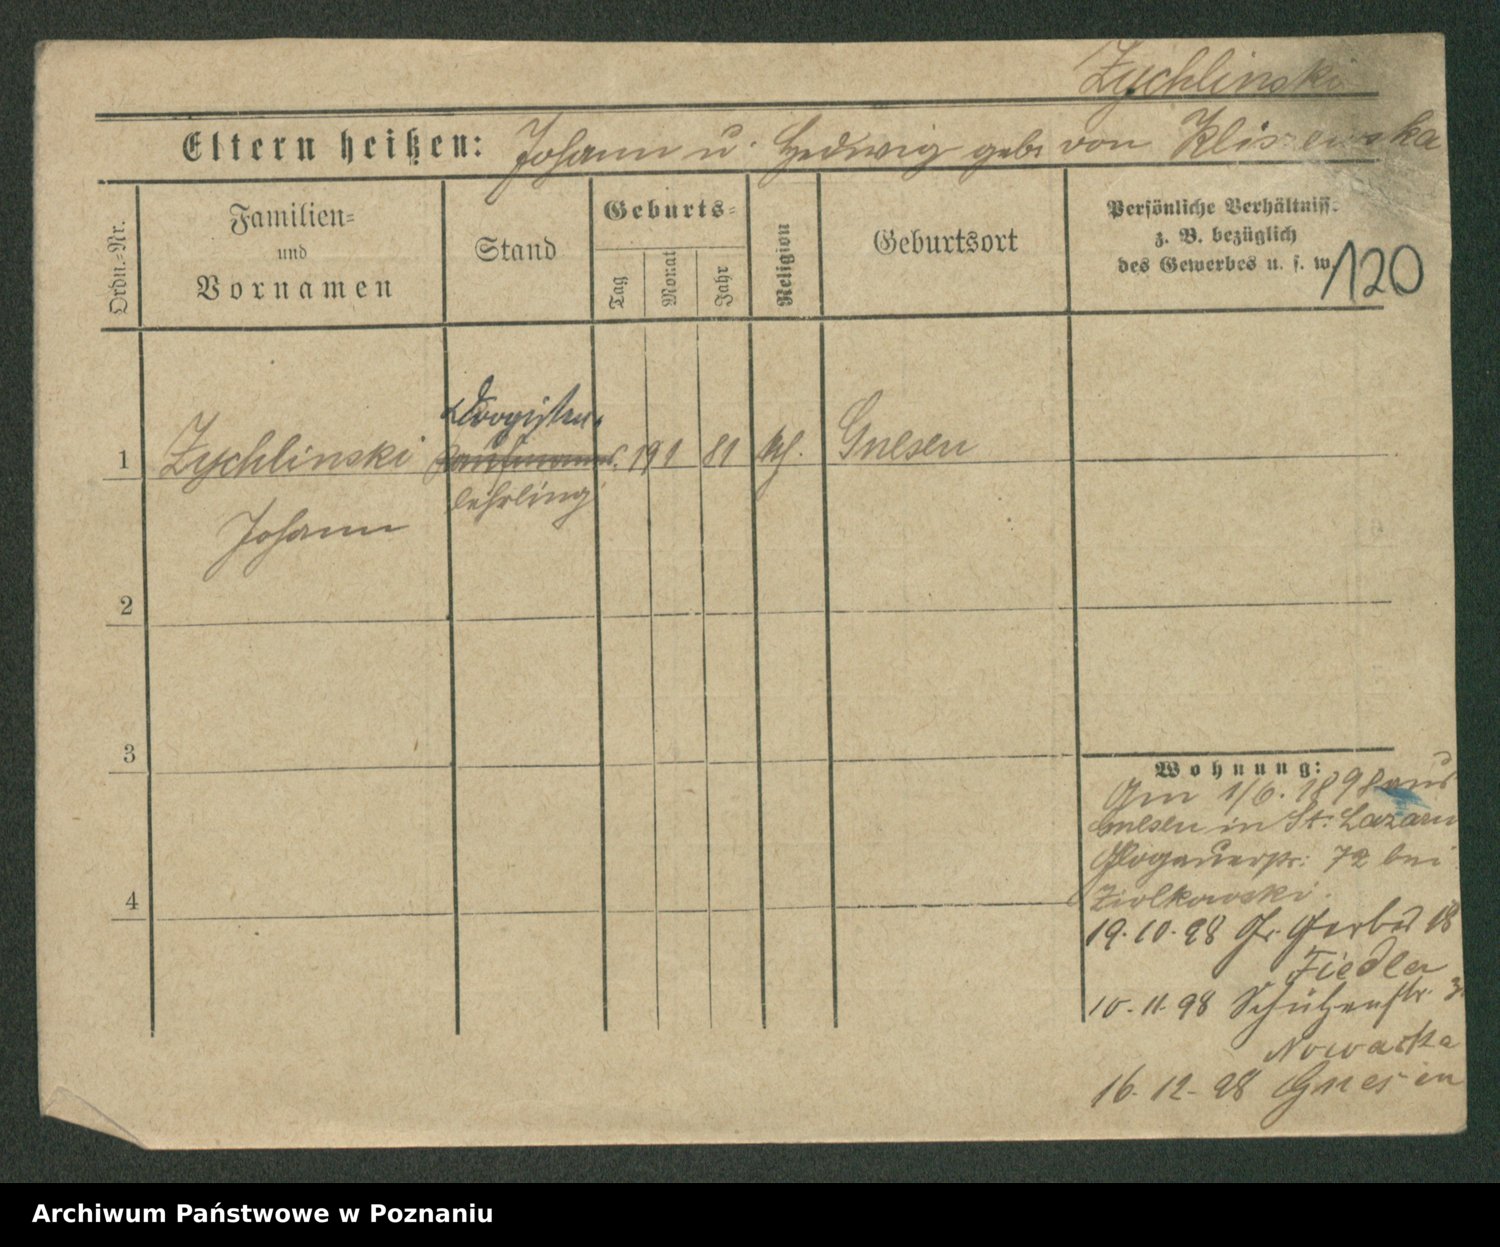 Zychlinski
Eltern heißen: Johann u. Hedwig geb. von Kliszewska
Ordn.-Nr.
Familien-
und
Vornamen
Stand
Geburts-
Tag
Monat
Jahr
Religion
Geburtsort
Persönliche Verhältniss.
z. B. bezüglich
des Gewerbes u. s. w.
120
Drogisten-
1 Zychlinski Kaufmanns 19 1 81 kth. Gnesen
lehrling
Johann
2
3
Wohnung:
Am 1/6. 1898 aus
Gnesen in St. Lazarus
Glogauerstr. 72 bei
Ziolkowski.
4
19.10.98 Gr. Gerber 18
Fiedler
10.11.98 Schützenstr.
Nowacka
16.12.98 Gnesen
Archiwum Państwowe w Poznaniu